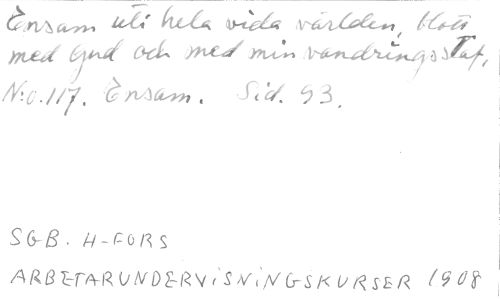 Ensam uti hela vida världen, blott
med Gud och med min vandringsstaf,
N:o.117. Ensam. Sid. 93.
SGB. H-FORS
ARBETARUNDERVISNINGSKURSER 1908